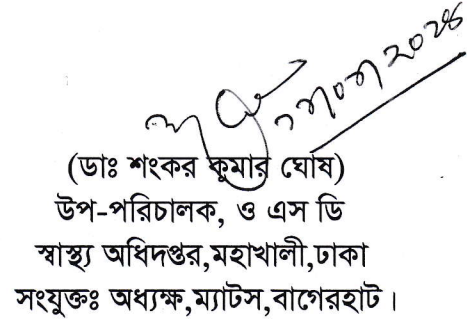 (ডাঃ শংকর কুমার ঘোষ)
উপ-পরিচালক, ও এস ডি
স্বাস্থ্য অধিদপ্তর,মহাখালী,ঢাকা
সংযুক্তঃ অধ্যক্ষ,ম্যাটস,বাগেরহাট।